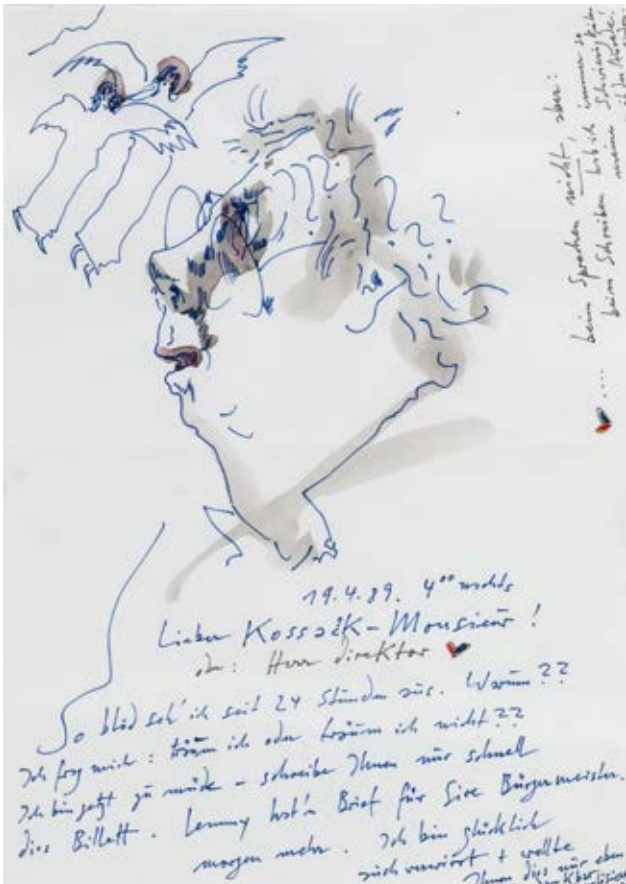 19.4.89. 4⁰⁰ nachts
Lieber Monsieur !
od.: Herr Direktor
So blöd seh' ich seit 24 Stunden aus. Warum ??
Ich frag mich : träum ich oder träum ich nicht ??
Ich bin jetzt zu müde – schreibe Ihnen nur schnell
dies Billett. Lemmy hat'n Brief für Sire Bürgermeister.
morgen mehr. Ich bin glücklich
auch verwirrt + wollte
Ihnen dies nur eben
.... beim Sprechen nicht, aber:
beim Schreiben hab ich immer so
meine